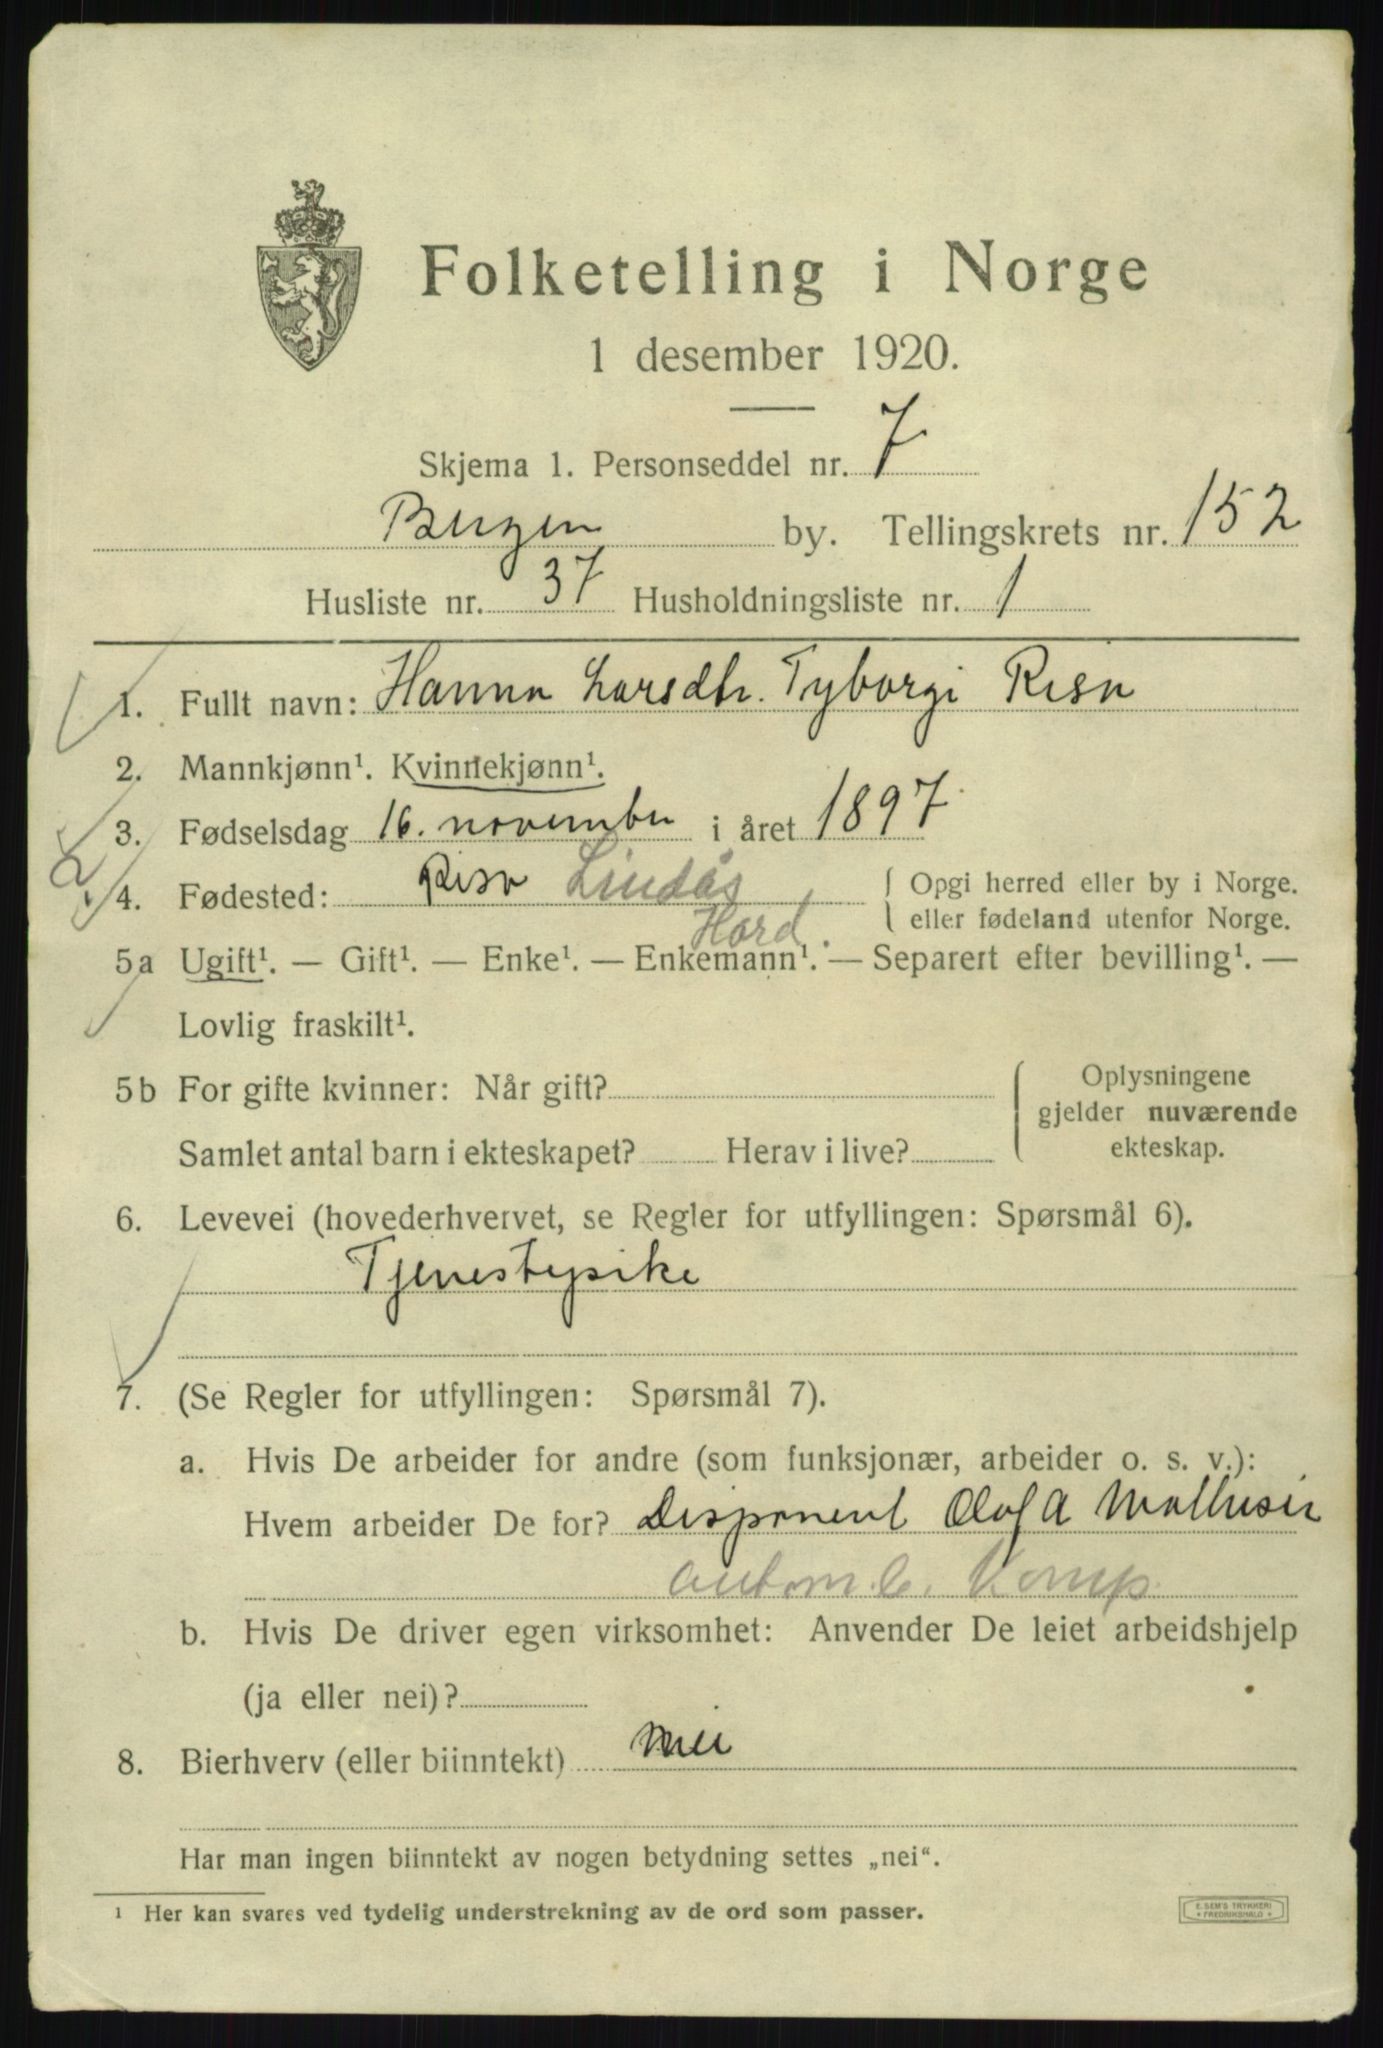 Folketelling i Norge
1 desember 1920.
Skjema 1. Personseddel nr. 7
Bergen by. Tellingskrets nr. 152
Husliste nr. 37 Husholdningsliste nr. 1
1. Fullt navn: Hanna Larsdtr. Tyborgi Risa
2. Mannkjønn¹. Kvinnekjønn¹.
3. Fødselsdag 16. november i året 1897
4. Fødested: Risa Lindås { Opgi herred eller by i Norge.
Hord. eller fødeland utenfor Norge.
5a Ugift¹. — Gift¹. — Enke¹. — Enkemann¹. — Separert efter bevilling¹. —
Lovlig fraskilt¹.
5b For gifte kvinner: Når gift?
Samlet antal barn i ekteskapet? Herav i live?
Oplysningene
gjelder nuværende
ekteskap.
6. Levevei (hovederhvervet, se Regler for utfyllingen: Spørsmål 6).
Tjenestepike
7. (Se Regler for utfyllingen: Spørsmål 7).
a. Hvis De arbeider for andre (som funksjonær, arbeider o. s. v.):
Hvem arbeider De for? Disponent Olaf A Mathisen
Komp.
b. Hvis De driver egen virksomhet: Anvender De leiet arbeidshjelp
(ja eller nei)?
8. Bierhverv (eller biinntekt) nei
Har man ingen biinntekt av nogen betydning settes „nei“.
¹ Her kan svares ved tydelig understrekning av de ord som passer.
E. SEM'S TRYKKERI
* FREDRIKSHALD *